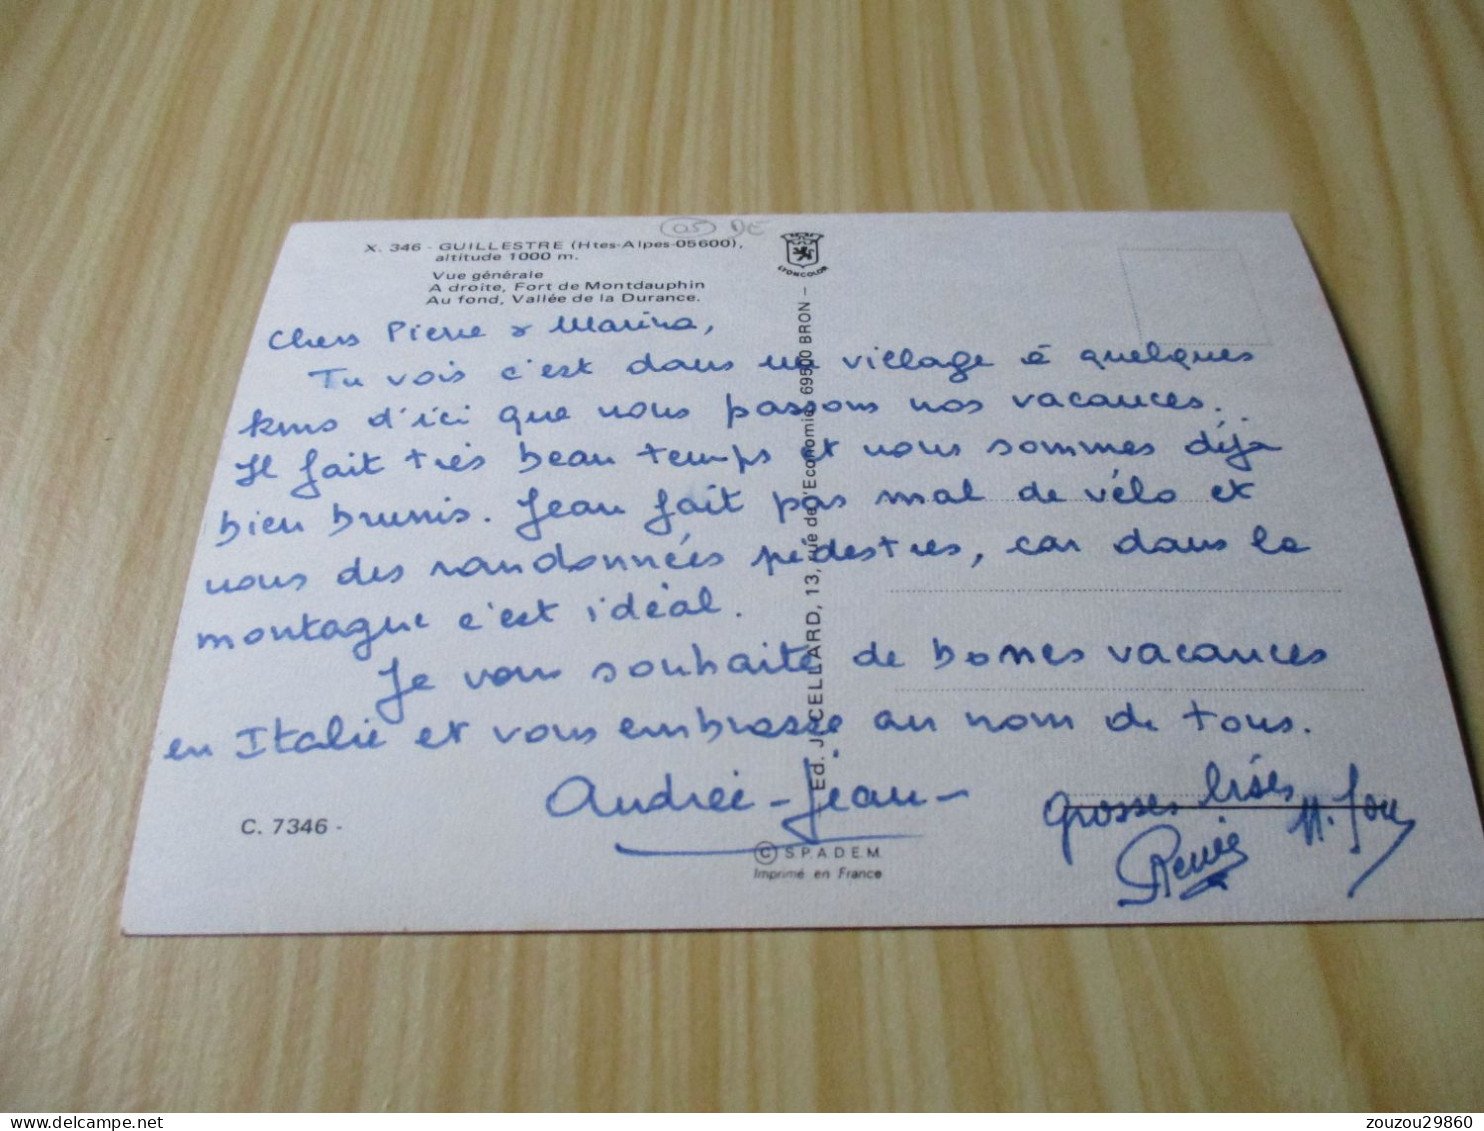 05 DE
X. 346 - GUILLESTRE (Htes-Alpes-05600),
altitude 1000 m.
Vue générale
A droite, Fort de Montdauphin
Au fond, Vallée de la Durance.
LYONCOLOR
Chers Pierre & Marina,
Tu vois c'est dans un village à quelques
kms d'ici que nous passons nos vacances.
Il fait très beau temps et nous sommes déjà
bien brunis. Jean fait pas mal de vélo et
nous des randonnées pédestres, car dans la
montagne c'est idéal.
Je vous souhaite de bonnes vacances
en Italie et vous embrasse au nom de tous.
Andrée - Jean -
Grosses bises
Renée
C. 7346 -
Ed. J. CELLARD, 13, rue de l'Economie, 69500 BRON -
© S.P.A.D.E.M.
Imprimé en France
zouzou29860